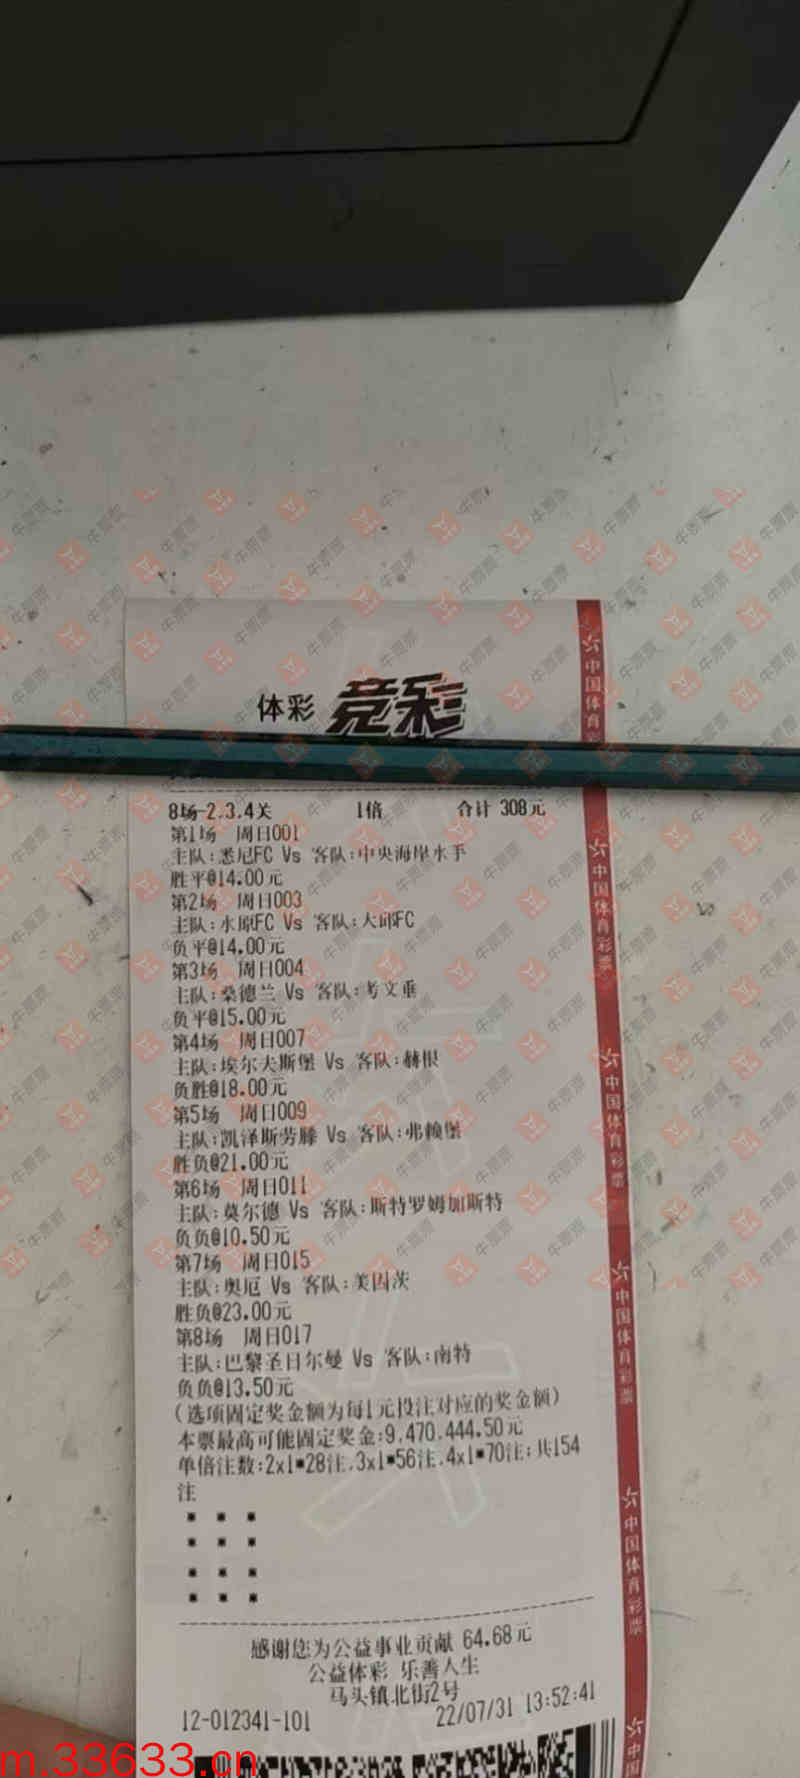 体彩 竞彩
8场-2.3.4关 1倍 合计 308元
第1场 周日001
主队:悉尼FC Vs 客队:中央海岸水手
胜平@14.00元
第2场 周日003
主队:水原FC Vs 客队:大邱FC
负平@14.00元
第3场 周日004
主队:桑德兰 Vs 客队:考文垂
负平@15.00元
第4场 周日007
主队:埃尔夫斯堡 Vs 客队:赫根
负胜@18.00元
第5场 周日009
主队:凯泽斯劳滕 Vs 客队:弗赖堡
胜负@21.00元
第6场 周日011
主队:莫尔德 Vs 客队:斯特罗姆加斯特
负负@10.50元
第7场 周日015
主队:奥厄 Vs 客队:美因茨
胜负@23.00元
第8场 周日017
主队:巴黎圣日尔曼 Vs 客队:南特
负负@13.50元
(选项固定奖金额为每1元投注对应的奖金额)
本票最高可能固定奖金:9,470,444.50元
单倍注数:2x1*28注,3x1*56注,4x1*70注;共154
注
感谢您为公益事业贡献 64.68元
公益体彩 乐善人生
马头镇北街2号
12-012341-101 22/07/31 13:52:41
中国体育彩
中国体育彩票
中国体育彩票
中国体育彩票
中国体育彩票
中国
牛票票
m.33633.cn